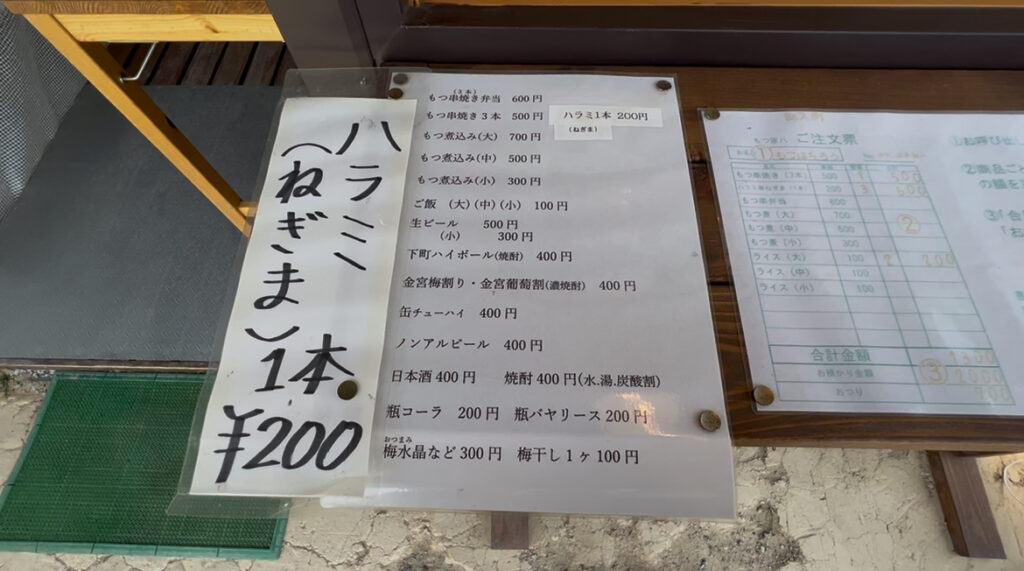 ハラミ
(ねぎま)
1本
¥200
(3本)
もつ串焼き弁当 600円
もつ串焼き3本 500円
ハラミ1本 200円
(ねぎま)
もつ煮込み(大) 700円
もつ煮込み(中) 500円
もつ煮込み(小) 300円
ご飯 (大)(中)(小) 100円
生ビール 500円
(小) 300円
下町ハイボール(焼酎) 400円
金宮梅割り・金宮葡萄割(濃焼酎) 400円
缶チューハイ 400円
ノンアルビール 400円
日本酒400円 焼酎400円(水.湯.炭酸割)
瓶コーラ 200円 瓶バヤリース200円
おつまみ
梅水晶など300円 梅干し1ヶ100円
ご注文票
①
もつ串焼き(3本) 500
200 3 600
700
もつ煮(中) 500 ②
もつ煮(小) 300
ライス(大) 100 2 200
ライス(中) 100
ライス(小) 100
合計金額 1300
お預かり金額 ③ 2000
おつり 700
①お呼びせ
②商品ご
の麺を
③「合
「お